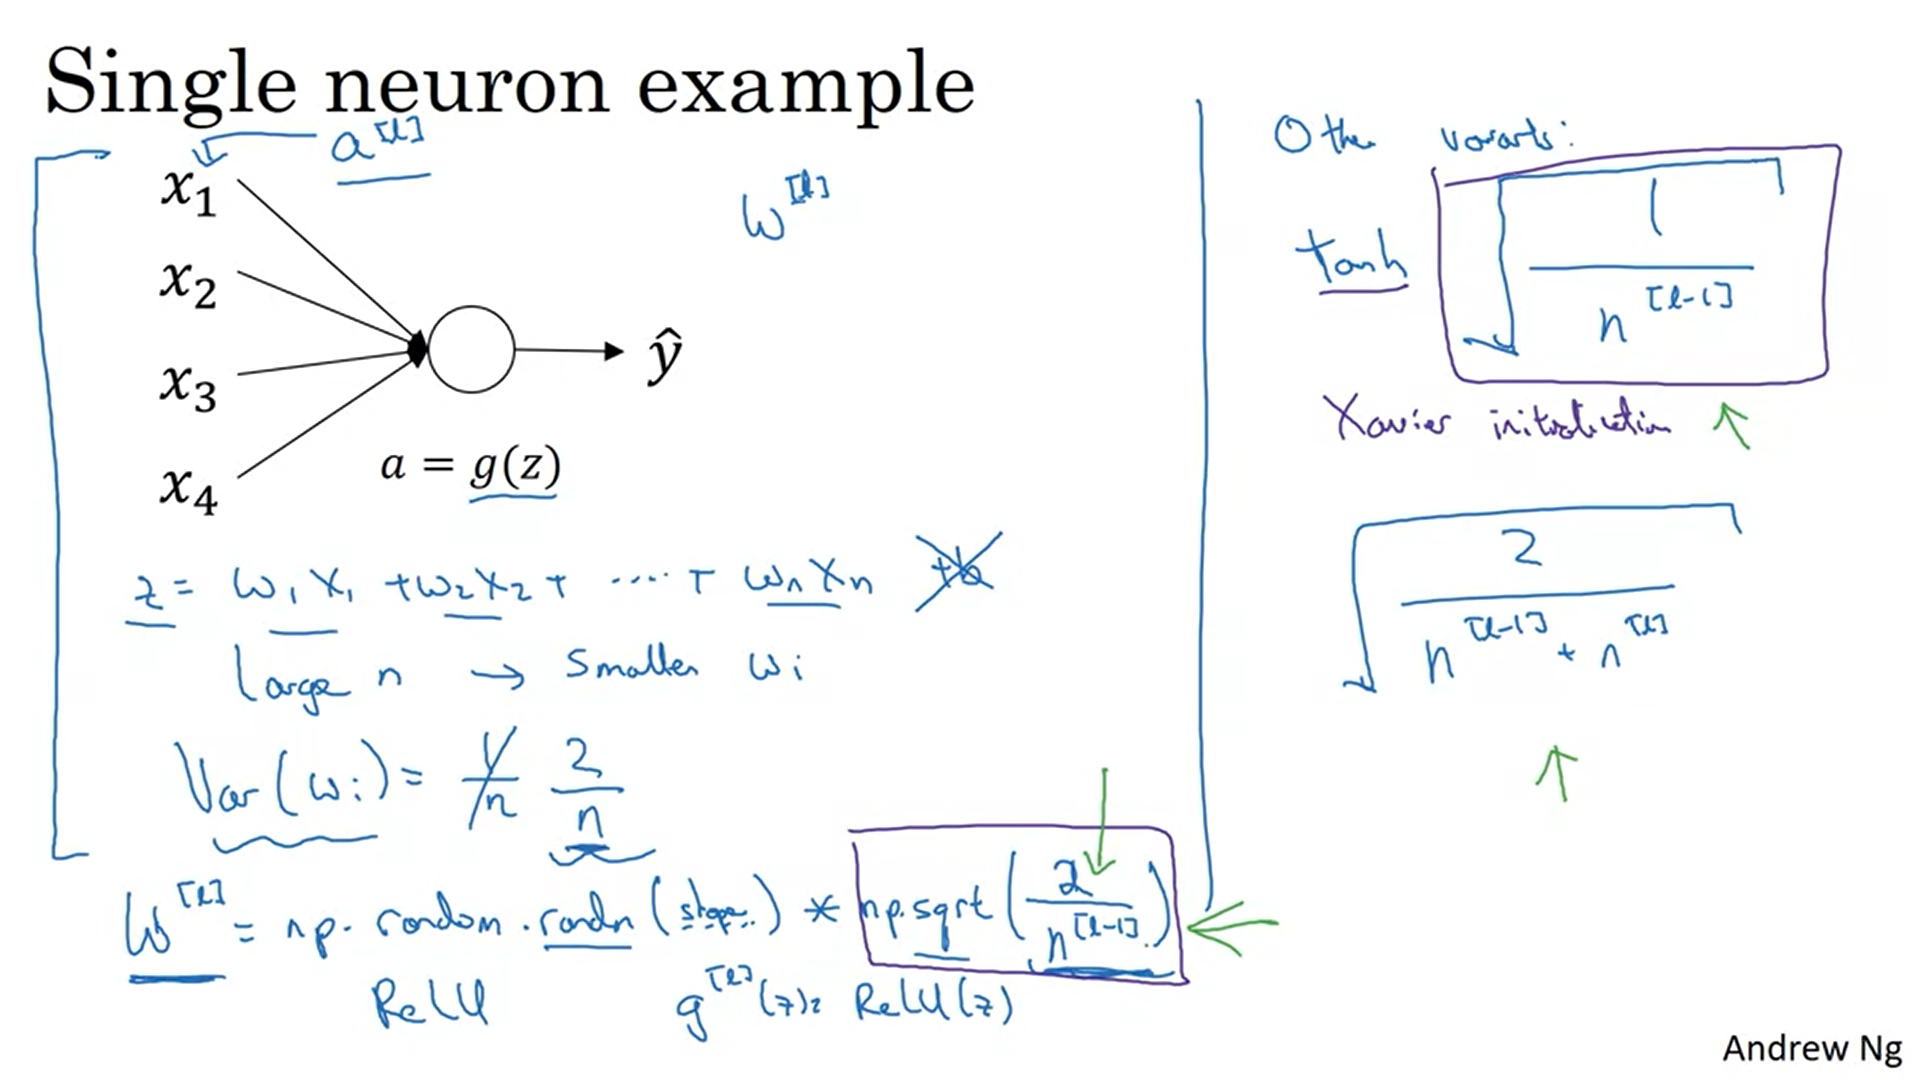 Single neuron example
a^[l]
x₁
x₂
x₃
x₄
ŷ
a = g(z)
w^[l]
z = w₁x₁ + w₂x₂ + ..... + wₙxₙ +b
Large n → Smaller wᵢ
Var(wᵢ) = 1/n 2/n
W^[l] = np.random.randn(shape) * np.sqrt(2/n^[l-1])
ReLU g^[l](z) = ReLU(z)
Other variants:
Tanh √(1/n^[l-1])
Xavier initialization
√(2/(n^[l-1] + n^[l]))
Andrew Ng